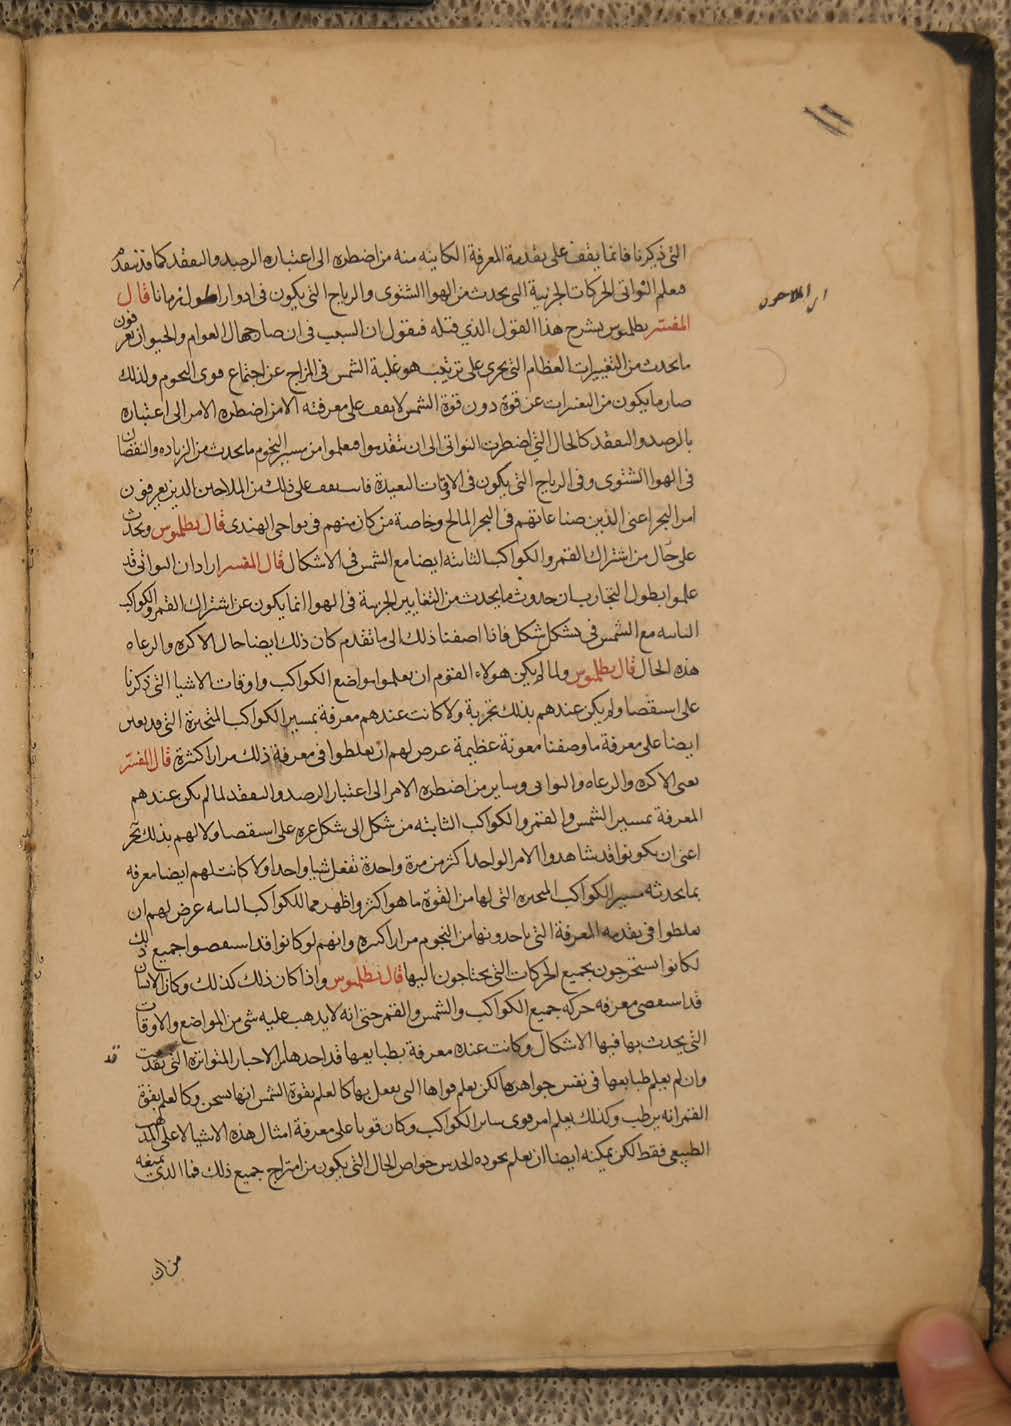 التى ذكرنا فانما يقف على تقدمة المعرفة الكاينه منه من اضطره الى اعتباره الرصد والتفقد كما قد تتقدم
فعلم النواتى الحركات الجزيية التى يحدث من الهوا الشتوى والرياح التى يكون فى ادوار اطول زمانا قال
اى الملاحون
المفسر بطلميوس يشرح هذا القول الذي قبله فيقول ان السبب فى ان صار جهال العوام والحيوان يعرفون
ما يحدث من التغييرات العظام التى يجرى على ترتيب هو غلبة الشمس فى المزاج عن اجتماع قوى النجوم ولذلك
صار ما يكون من التغيرات عن قوة دون قوة الشمس لا يقف على معرفته الا من اضطره الامر الى اعتباره
بالرصد والتفقد كالحال التي اضطرت النواتى الى ان تقدموا فعلموا من مسير النجوم ما يحدث من الزياده والنقصان
فى الهوا الشتوى وفى الرياح التى يكون فى الاوقات البعيدة فاستقف على ذلك من الملاحين الذين يعرفون
امر البحر اعنى الذين صناعاتهم فى البحر المالح وخاصة من كان منهم فى نواحى الهندى قال بطلميوس ويحدث
على حال من اشتراك القمر والكواكب الثابته ايضا مع الشمس فى الاشكال قال المفسر اراد ان النواتى قد
علموا بطول التجارب ان حدوث ما يحدث من التغايير الجزيية فى الهوا انما يكون عن اشتراك القمر والكواكب
الثابته مع الشمس فى شكل شكل فاذا اضفنا ذلك الى ما تقدم كان ذلك ايضا حال الاكره والرعاه
هذه الحال قال بطلميوس ولما لم يكن هولاء القوم ان يعلموا مواضع الكواكب واوقات الاشيا التى ذكرنا
على استقصا ولم يكن عندهم بذلك تجربة ولا كانت عندهم معرفة بمسير الكواكب المتحيرة التى قد يعين
ايضا على معرفة ما وصفنا معونة عظيمة عرض لهم ان يغلطوا فى معرفة ذلك مرارا كثرة قال المفسر
يعنى الاكره والرعاه والنواتى وساير من اضطره الامر الى اعتبار الرصد والتفقد لما لم يكن عندهم
المعرفة بمسير الشمس والقمر والكواكب الثابته من شكل الى شكل غيره على استقصا ولا لهم بذلك تجر
اعنى ان يكونوا قد شاهدوا الامر الواحد اكثر من مرة واحدة تفعل شيا واحدا ولا كانت لهم ايضا معرفه
بما يحدثه مسير الكواكب المتحيره التى لها من القوة ما هو اكثر واظهر مما للكواكب الثابته عرض لهم ان
يغلطوا فى تقدمه المعرفة التى ياخذونها من النجوم مرارا كثيره وانهم لو كانوا قد استقصوا جميع ذلك
لكانوا يستخرجون بجميع الحركات التى يحتاجون اليها قال بطلميوس واذا كان ذلك كذلك وكان الانسان
قد استقصى معرفه حركه جميع الكواكب والشمس والقمر حتى انه لا يذهب عليه شى من المواضع والاوقات
التى يحدث بها فيها الاشكال وكانت عنده معرفة بطبايعها قد اخذها من الاخبار المتواترة التى تقدمت
قد
وان لم يعلم طبايعها فى نفس جواهرها لكن يعلم قواها التى يفعل بها كالعلم بقوة الشمس انها تسخن وكالعلم بقوة
القمر انه يرطب وكذلك يعلم امر قوى ساير الكواكب وكان قويا على معرفة امثال هذه الاشيا لا على المذهب
الطبيعى فقط لكن يمكنه ايضا ان يعلم بجوده الحدس خواص الحال التى يكون من امتزاج جميع ذلك فما الذى يمنعه
من ان